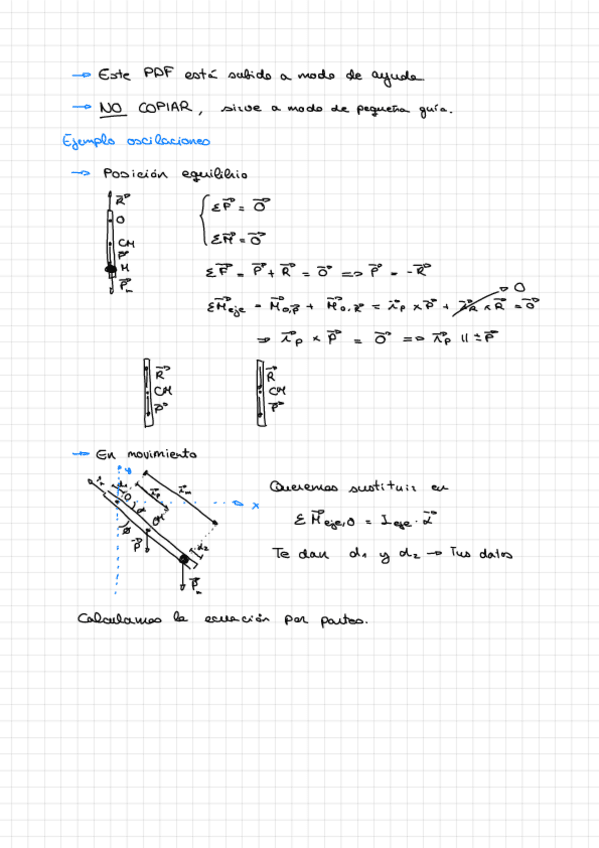 → Este PDF está subido a modo de ayuda
→ NO COPIAR, sirve a modo de pequeña guía.
Ejemplo oscilaciones
→ Posición equilibrio
R⃗
O
CM
P⃗
M
P⃗m
ΣF⃗ = 0⃗
ΣM⃗ = 0⃗
ΣF⃗ = P⃗ + R⃗ = 0⃗ => P⃗ = -R⃗
ΣM⃗eje = M⃗o,P⃗ + M⃗o,R⃗ = r⃗p × P⃗ + r⃗R × R⃗ = 0⃗
0
=> r⃗p × P⃗ = 0⃗ => r⃗p || ± P⃗
R⃗
CM
P⃗
R⃗
CM
P⃗
→ En movimiento
y
d₁
r⃗p
r⃗m
O
x
CM
ϕ
d₂
P⃗
P⃗m
Queremos sustituir en
ΣM⃗eje,O = Ieje · α⃗
Te dan d₁ y d₂ → Tus datos
Calculamos la ecuación por partes.